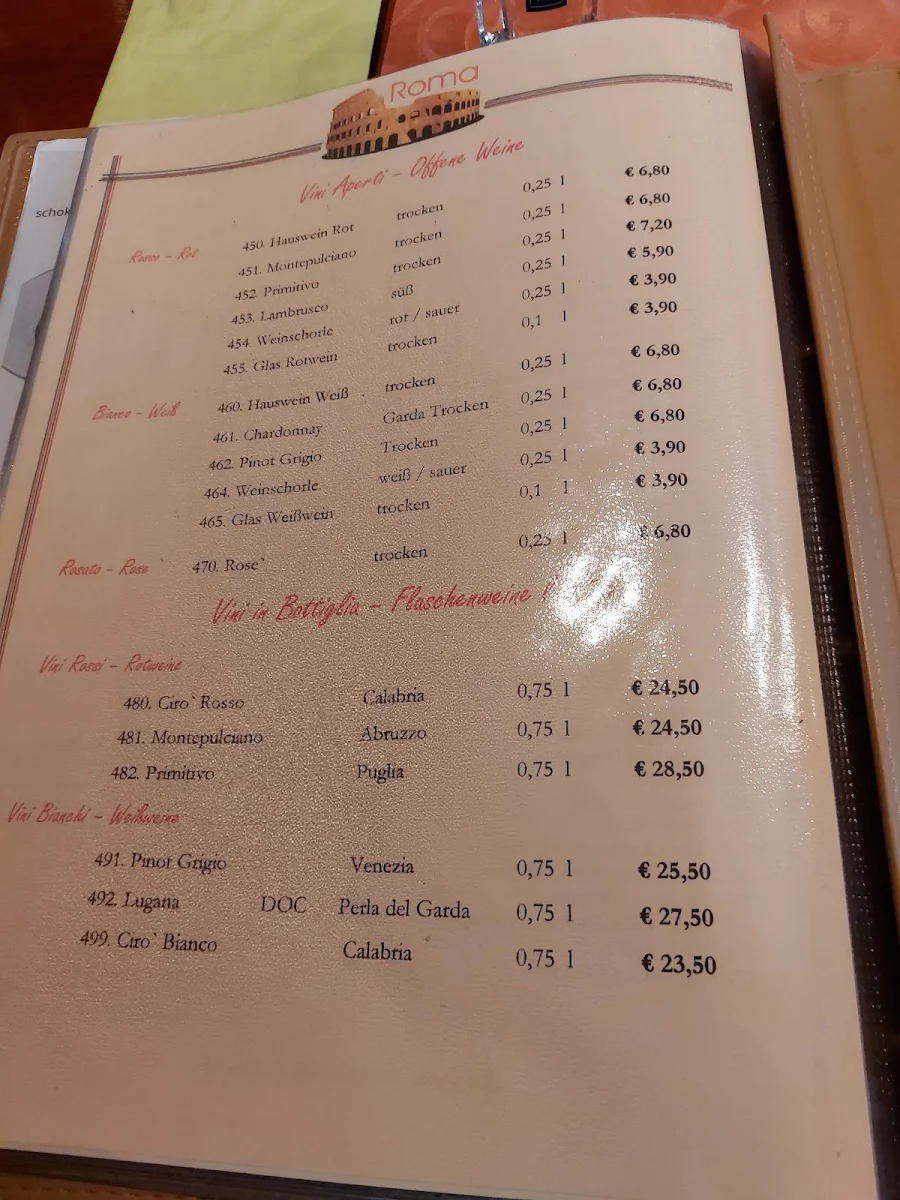 schok
Roma
Vini Aperti – Offene Weine
Rosso – Rot 450. Hauswein Rot trocken 0,25 l € 6,80
451. Montepulciano trocken 0,25 l € 6,80
452. Primitivo trocken 0,25 l € 7,20
453. Lambrusco süß 0,25 l € 5,90
454. Weinschorle rot / sauer 0,25 l € 3,90
455. Glas Rotwein trocken 0,1 l € 3,90
Bianco – Weiß 460. Hauswein Weiß trocken 0,25 l € 6,80
461. Chardonnay Garda Trocken 0,25 l € 6,80
462. Pinot Grigio Trocken 0,25 l € 6,80
464. Weinschorle weiß / sauer 0,25 l € 3,90
465. Glas Weißwein trocken 0,1 l € 3,90
Rosato – Rose` 470. Rose` trocken 0,25 l € 6,80
Vini in Bottiglia – Flaschenweine
Vini Rossi – Rotweine
480. Ciro` Rosso Calabria 0,75 l € 24,50
481. Montepulciano Abruzzo 0,75 l € 24,50
482. Primitivo Puglia 0,75 l € 28,50
Vini Bianchi – Weißweine
491. Pinot Grigio Venezia 0,75 l € 25,50
492. Lugana DOC Perla del Garda 0,75 l € 27,50
499. Ciro` Bianco Calabria 0,75 l € 23,50